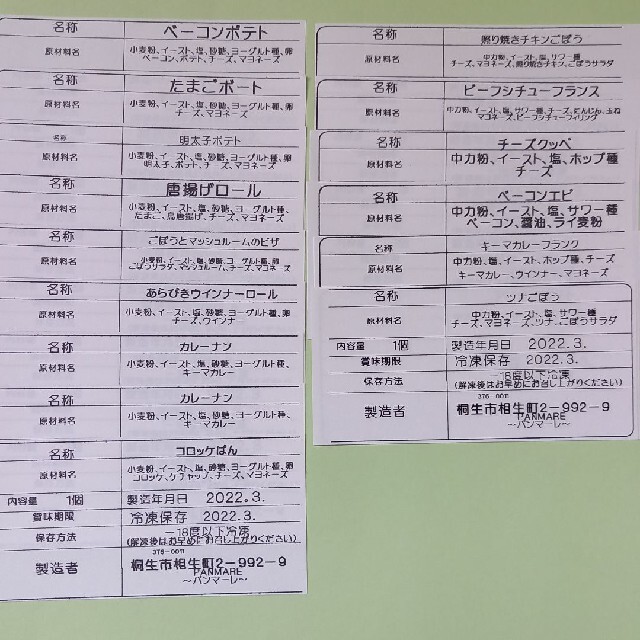 名称 ベーコンポテト
原材料名 小麦粉、イースト、塩、砂糖、ヨーグルト種、卵
ベーコン、ポテト、チーズ、マヨネーズ
名称 たまごボート
原材料名 小麦粉、イースト、塩、砂糖、ヨーグルト種、卵
チーズ、マヨネーズ
名称 明太子ポテト
原材料名 小麦粉、イースト、塩、砂糖、ヨーグルト種、卵
明太子、ポテト、チーズ、マヨネーズ
名称 唐揚げロール
原材料名 小麦粉、イースト、塩、砂糖、ヨーグルト種、
たまご、鳥唐揚げ、チーズ、マヨネーズ
名称 ごぼうとマッシュルームのピザ
原材料名 小麦粉、イースト、塩、砂糖、ヨーグルト種、卵
ごぼうサラダ、マッシュルーム、チーズ、マヨネーズ
名称 あらびきウインナーロール
原材料名 小麦粉、イースト、塩、砂糖、ヨーグルト種、卵
チーズ、ウインナ
名称 カレーナン
原材料名 小麦粉、イースト、塩、砂糖、ヨーグルト種、
キーマカレー
名称 カレーナン
原材料名 小麦粉、イースト、塩、砂糖、ヨーグルト種、
キーマカレー
名称 コロッケぱん
原材料名 小麦粉、イースト、塩、砂糖、ヨーグルト種、卵
コロッケ、ケチャップ、チーズ、マヨネーズ
内容量 1個 製造年月日 2022.3.
賞味期限 冷凍保存 2022.3.
保存方法 -18度以下冷凍
(解凍後はお早めにお召し上がりください)
製造者 376-0011
桐生市相生町2-992-9
PANMARE
～パンマーレ～
名称 照り焼きチキンごぼう
原材料名 中力粉、イースト、塩、サワー種
チーズ、マヨネーズ、照り焼きチキン、ごぼうサラダ
名称 ビーフシチューフランス
原材料名 中力粉、イースト、塩、サワー種、チーズ、にんじん、玉ね
マヨネーズ、ビーフシチューフィリング
名称 チーズクッペ
原材料名 中力粉、イースト、塩、ホップ種
チーズ
名称 ベーコンエピ
原材料名 中力粉、イースト、塩、サワー種
ベーコン、醤油、ライ麦粉
名称 キーマカレーフランク
原材料名 中力粉、塩、イースト、ホップ種、チーズ
キーマカレー、ウインナー、マヨネーズ
名称 ツナごぼう
原材料名 中力粉、イースト、塩、サワー種
チーズ、マヨネーズ、ツナ、ごぼうサラダ
内容量 1個 製造年月日 2022.3.
賞味期限 冷凍保存 2022.3.
保存方法 -18度以下冷凍
(解凍後はお早めにお召し上がりください)
製造者 376-0011
桐生市相生町2-992-9
PANMARE
～パンマーレ～